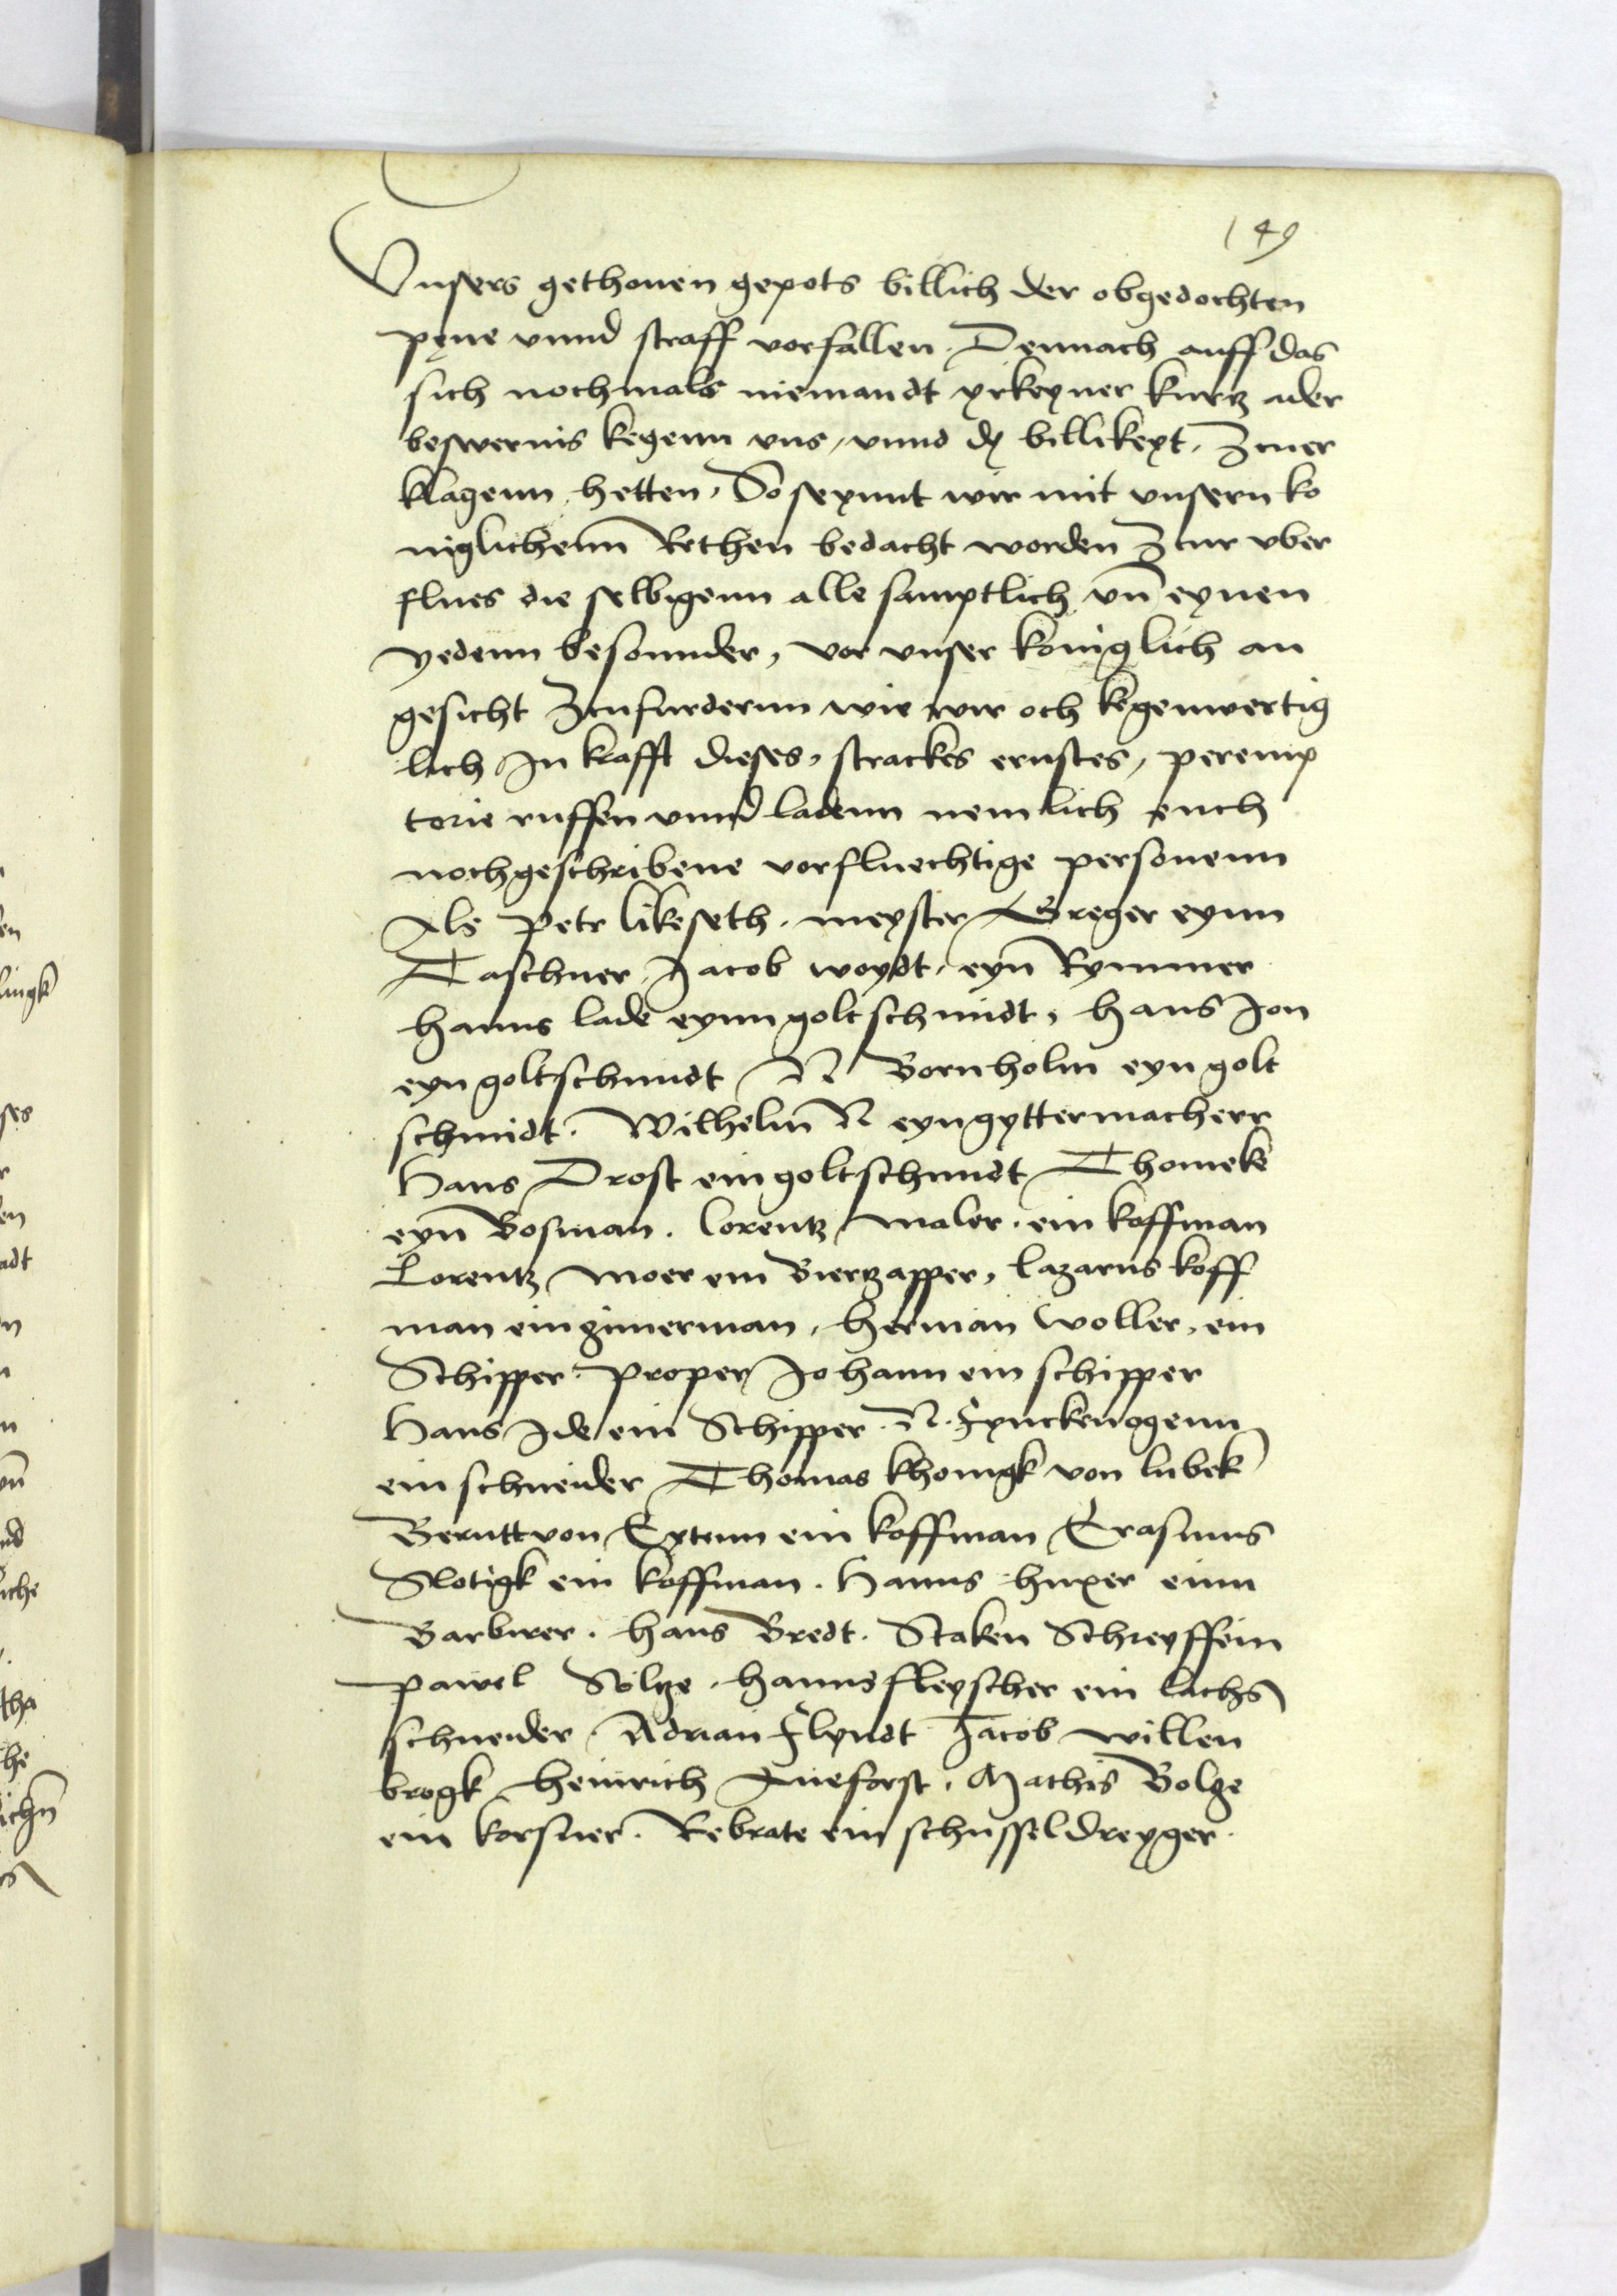 149
Vnsers gethonen gepots billich der obgedochten
pene vnnd straff vorfallen. Dennach auff das
sich nochmals niemandt yrkeyner kurtz ader
beswernis kegenn vns, vnnd dy billikeyt, Zcuer
klagenn hetten, So seynnt wir mit vnsern ko
niglichenn Rethen bedacht worden Zcur vber
flues die selbigenn alle samptlich vn eynen
yedenn besonnder, vor vnser koniglich an
gesicht Zcufurdernn wie wir och kegenwertig
lich In krafft dieses, strackes ernstes, peremp
torie ruffen vnnd ladenn nemlich euch
nochgeschribene vorfluechtige personenn
Als Petr likeseth. meyster Greger eynn
Taschner, Jacob woydt, eyn Rymmer
Hanns lade eynn goltschmidt, Hans Jon
eyn goltschmidt N Bornholm eyn golt
schmidt. Wilhelm N eyn gyttermacherr
Hans Drost ein goltschmidt Thomeke
eyn Bosman. Lorentz maler. ein koffman
Lorentz moer ein Biertzapper, Lazarus koff
man ein zimerman, Herman Woller, ein
Schipper. Proper Johann ein schipper
Hans Ide ein Schipper. N. Fynckenogenn
ein schneider Thomas khonigk von lubek
Berntt von Extenn ein koffman Erasmus
Slotigk ein koffman. Hanns huxer einn
Barbirer. Hans Bredt. Staken Schreyffein
Pawel Soltze. Hanns fleyscher ein lachs
schneider. Adrian Flyndt Jacob willen
brogk Heinrich Queforst, Mathis Bolze
ein korsner. Rebrate ein schusseldreyger.